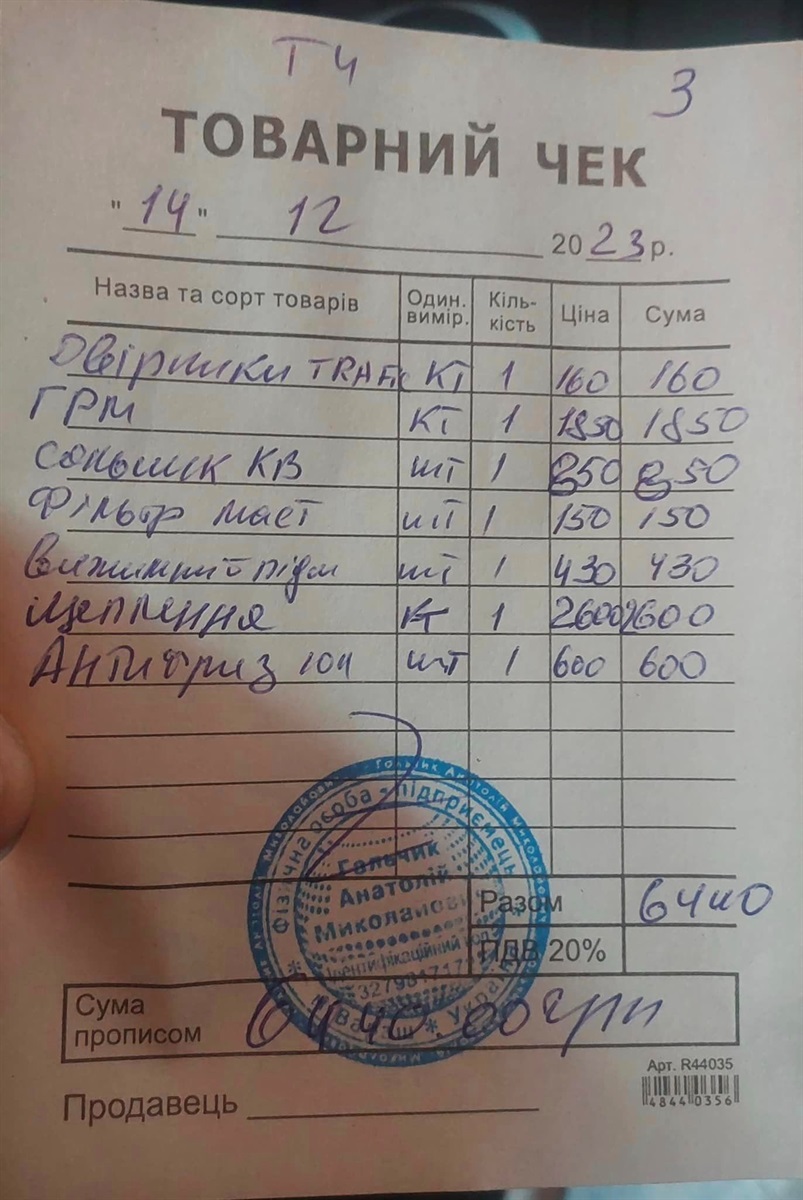 ТЧ 3
ТОВАРНИЙ ЧЕК
"14" 12 2023 р.
Назва та сорт товарів Один. вимір. Кіль-кість Ціна Сума
Двірники TRAFIC КТ 1 160 160
ГРМ КТ 1 1850 1850
Сальник КВ шт 1 650 650
Фільтр маст шт 1 150 150
Вижимний підш шт 1 430 430
Щеплення КТ 1 2600 2600
Антифриз 10л шт 1 600 600
Фізична особа - підприємець
Гальчик
Анатолій
Миколайович
Ідентифікаційний код
Разом 6440
ПДВ 20%
Сума прописом 6440.00 грн
Арт. R44035
4844 0356
Продавець